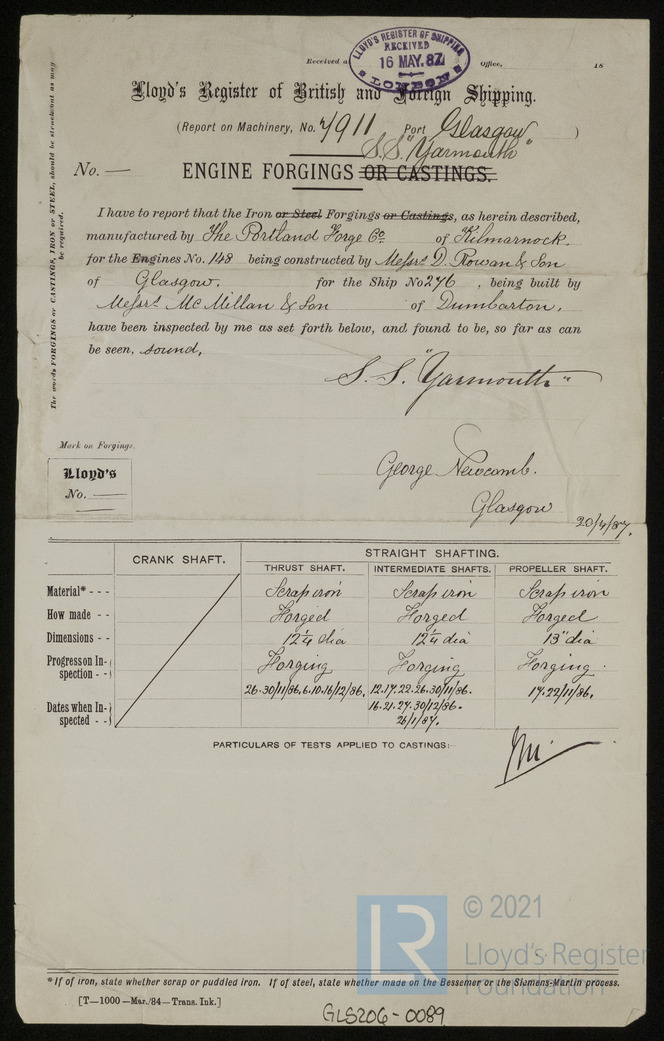 Received at Office, 18
LLOYD'S REGISTER OF SHIPPING
RECEIVED
16 MAY. 87
LONDON
Lloyd's Register of British and Foreign Shipping.
(Report on Machinery, No. 7911 Port Glasgow )
S.S. "Yarmouth"
No. — ENGINE FORGINGS OR CASTINGS.
I have to report that the Iron or Steel Forgings or Castings, as herein described,
manufactured by The Portland Forge Co. of Kilmarnock.
for the Engines No. 148 being constructed by Messrs D. Rowan & Son
of Glasgow. for the Ship No 276 , being built by
Messrs McMillan & Son of Dumbarton,
have been inspected by me as set forth below, and found to be, so far as can
be seen, sound,
S.S. "Yarmouth"
The words FORGINGS or CASTINGS, IRON or STEEL, should be struck out as may
be required.
Mark on Forgings.
Lloyd's
No. ——
George Newcomb.
Glasgow
20/4/87.
CRANK SHAFT. STRAIGHT SHAFTING.
THRUST SHAFT. INTERMEDIATE SHAFTS. PROPELLER SHAFT.
Material* - - - Scrap iron Scrap iron Scrap iron
How made - - Forged Forged Forged
Dimensions - - 12¼ dia 12¼ dia 13" dia
Progress on In-
spection - - Forging Forging Forging.
Dates when In-
spected - - 26.30/11/86, 6.10.16/12/86. 12.17.22.26.30/11/86. 17.22/11/86.
16.21.27.30/12/86.
26/1/87.
PARTICULARS OF TESTS APPLIED TO CASTINGS:—
LR © 2021
Lloyd's Register
Foundation
*If of iron, state whether scrap or puddled iron. If of steel, state whether made on the Bessemer or the Siemens-Martin process.
[T—1000—Mar./84—Trans. Ink.]
GLS206-0089